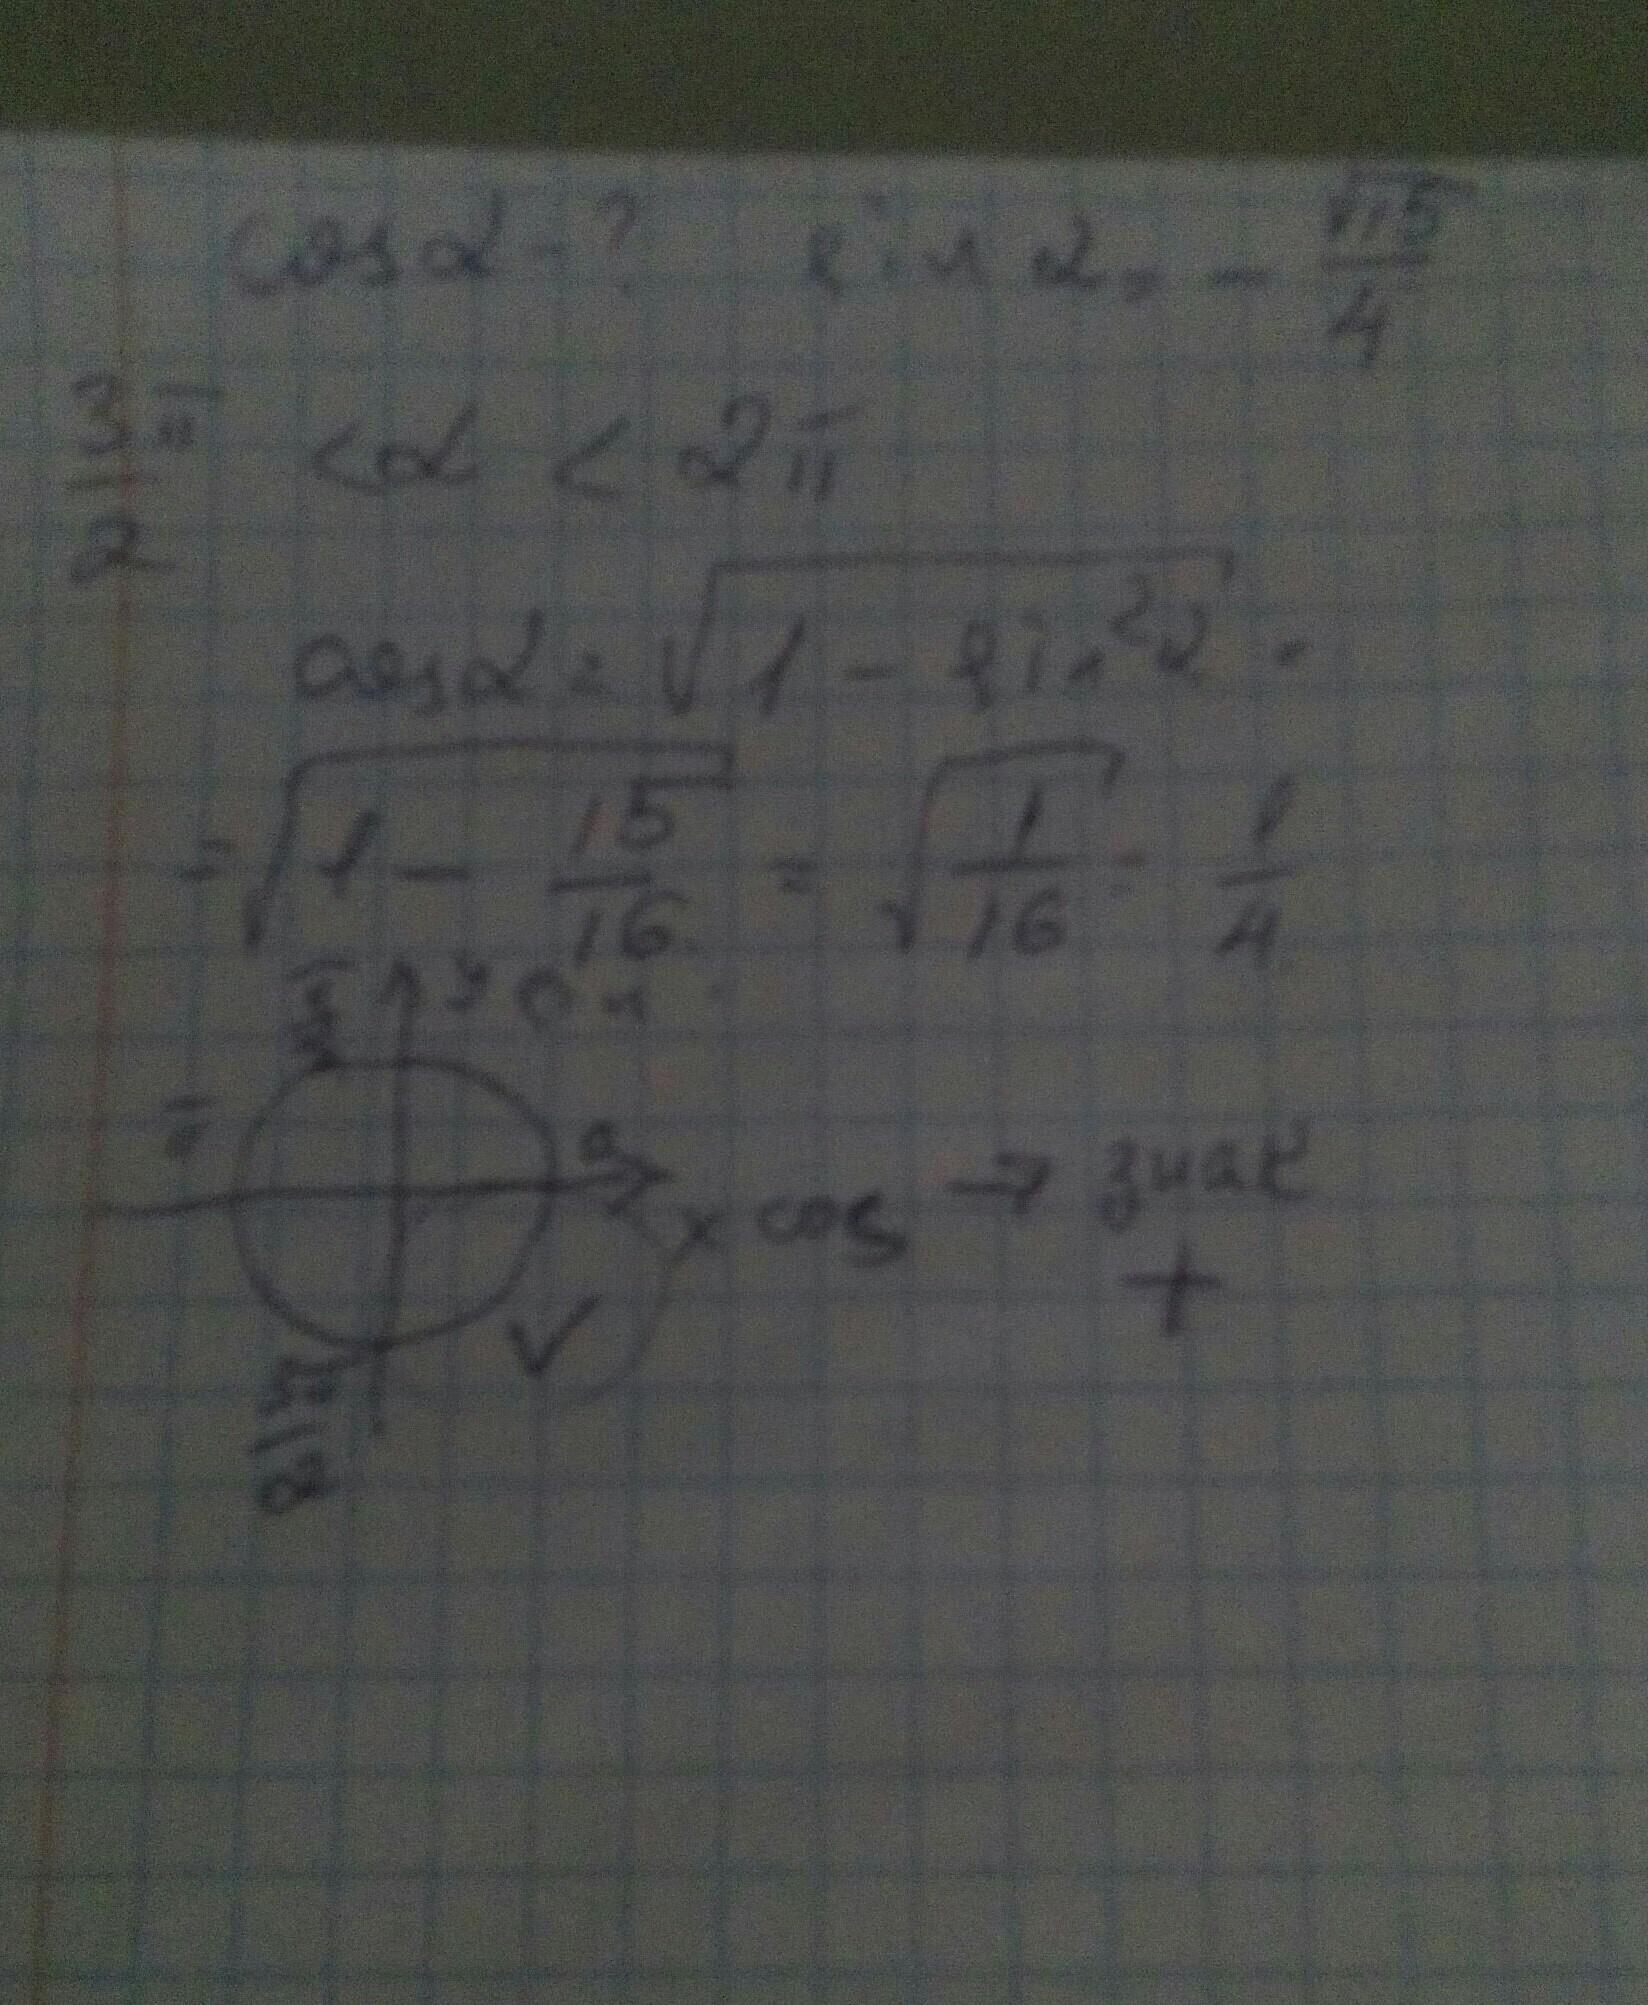 cosα - ? sin α = - √15/4
3π/2 < α < 2π
cosα = √(1 - sin²α) =
= √(1 - 15/16) = √(1/16) = 1/4
π/2 y sin
π 0
x cos → знак
+
3π/2